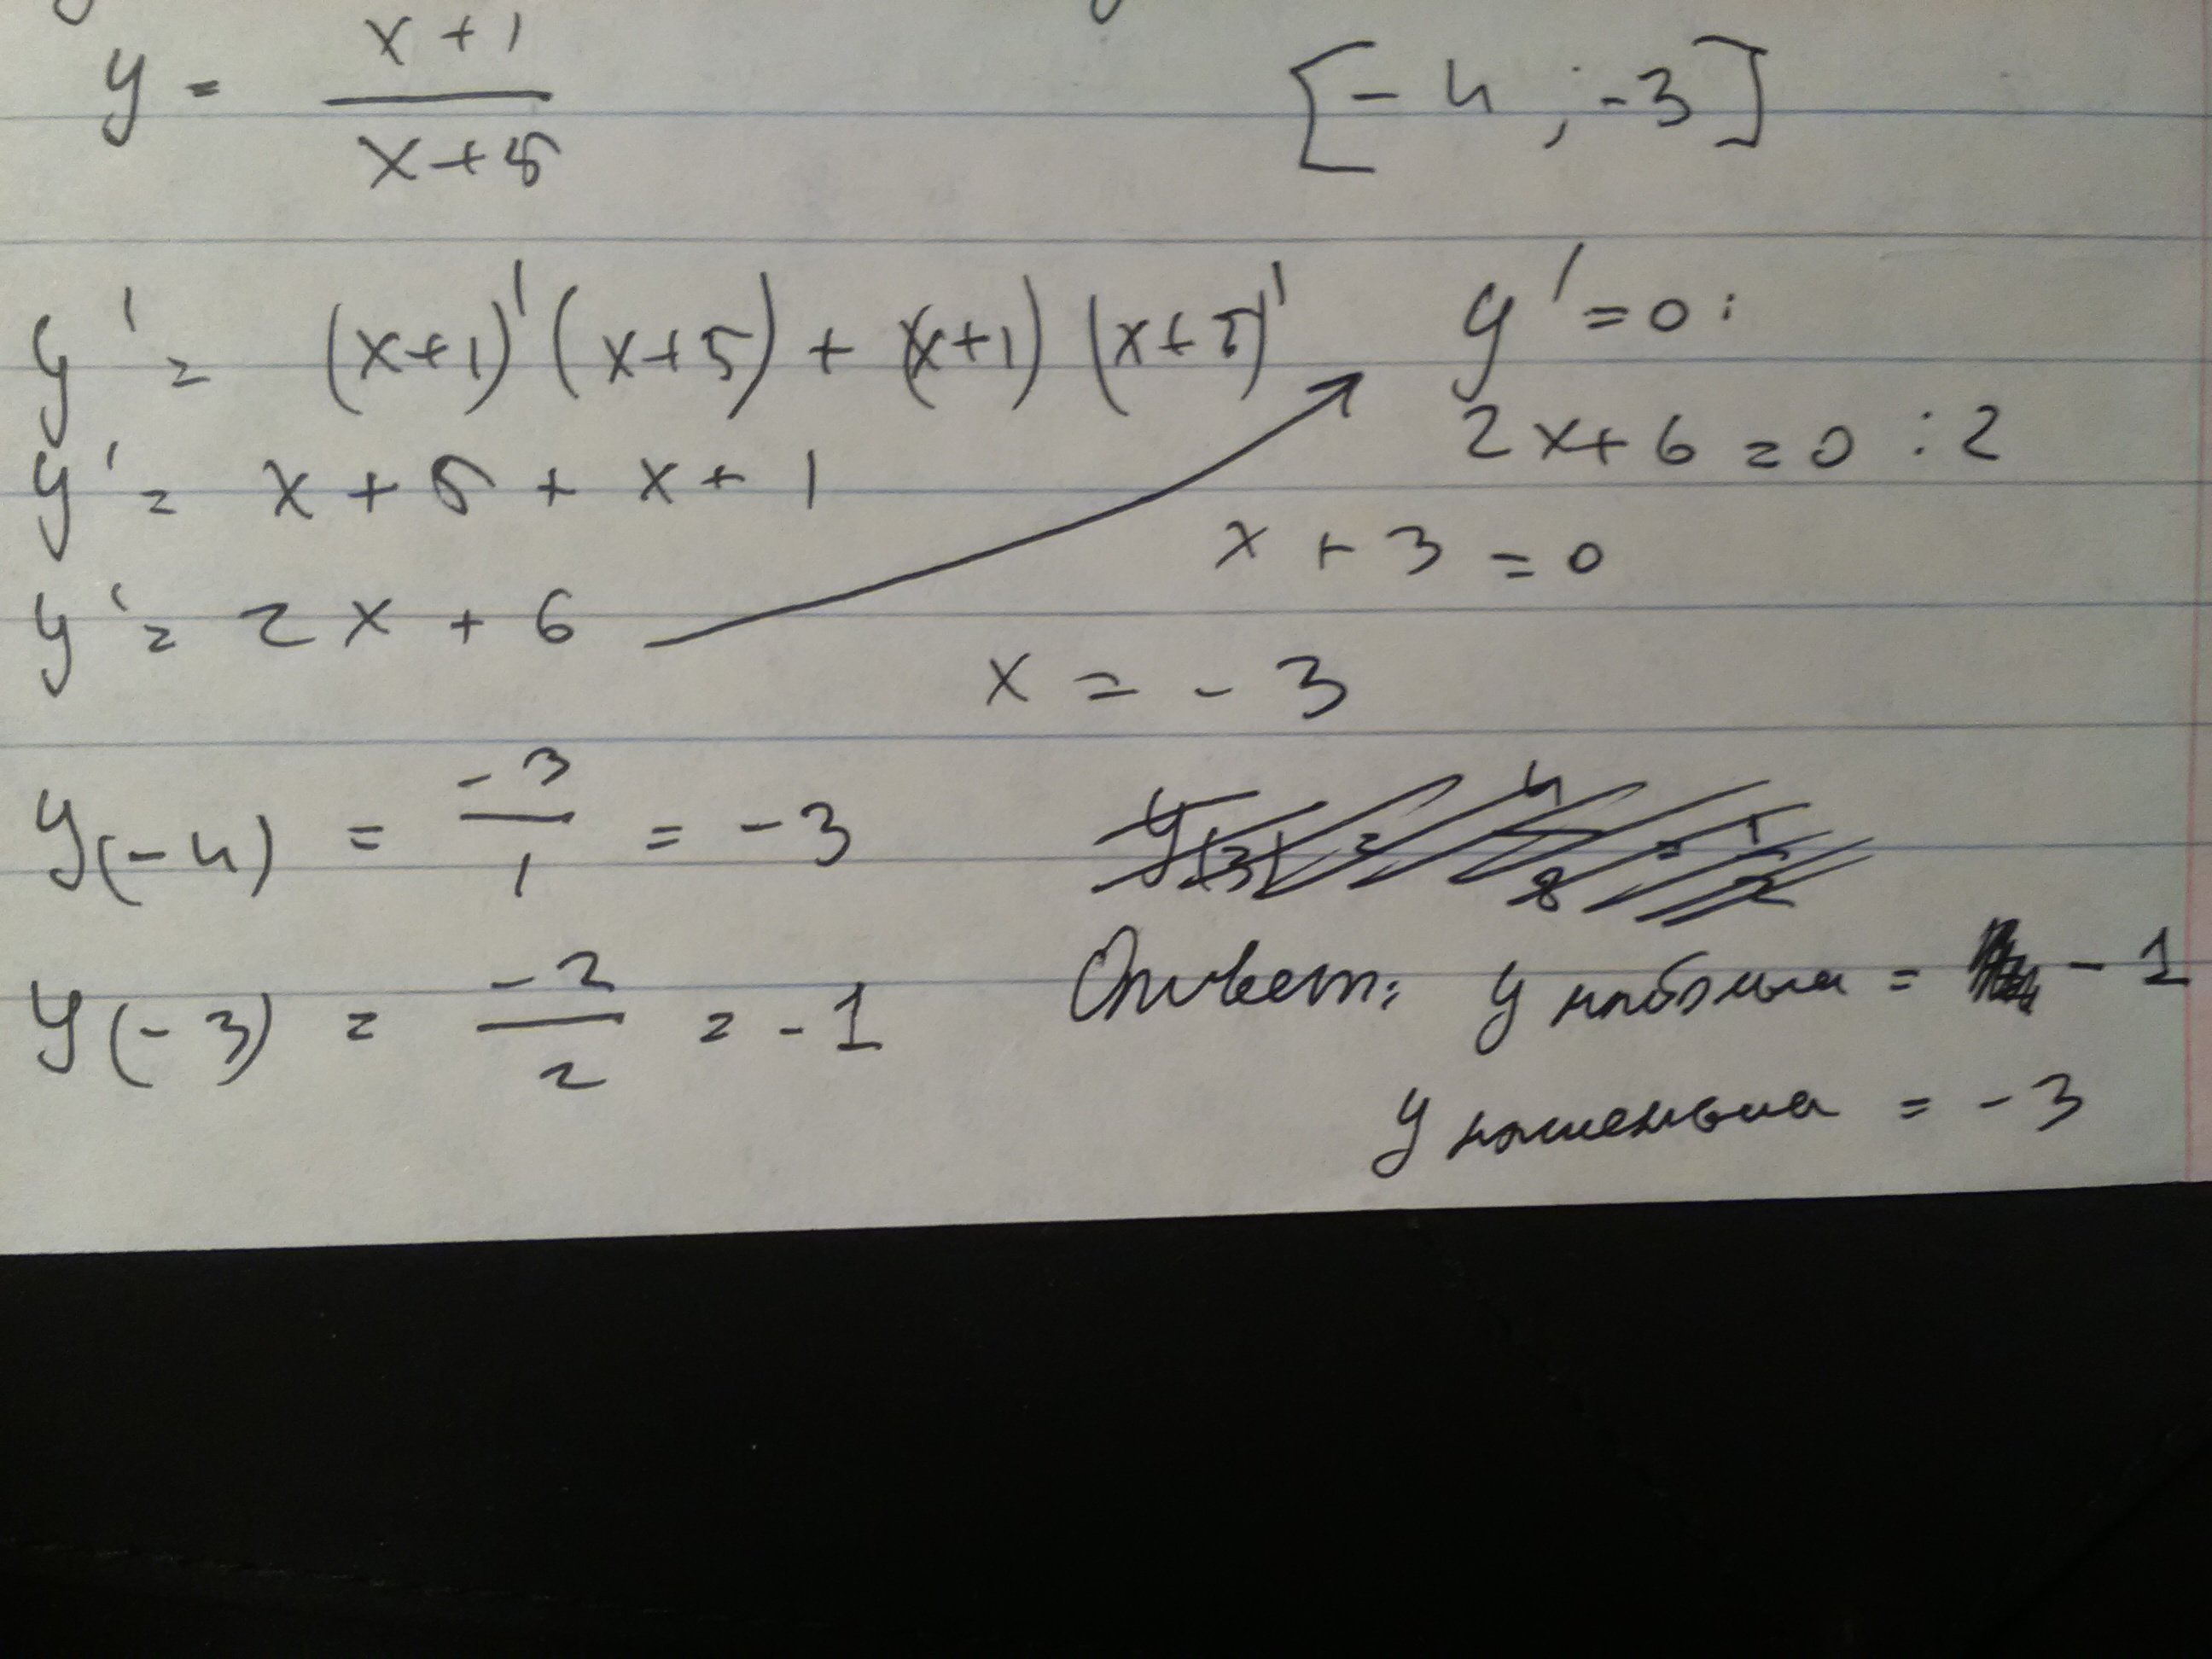 y = x+1 / x+5 [-4 ; -3]
y' = (x+1)'(x+5) + (x+1)(x+5)' y' = 0 :
y' = x + 5 + x + 1 2x+6 = 0 :2
x + 3 = 0
y' = 2x + 6
x = -3
y(-4) = -3/1 = -3
y(-3) = -2/2 = -1 Ответ: y = -1
y = -3